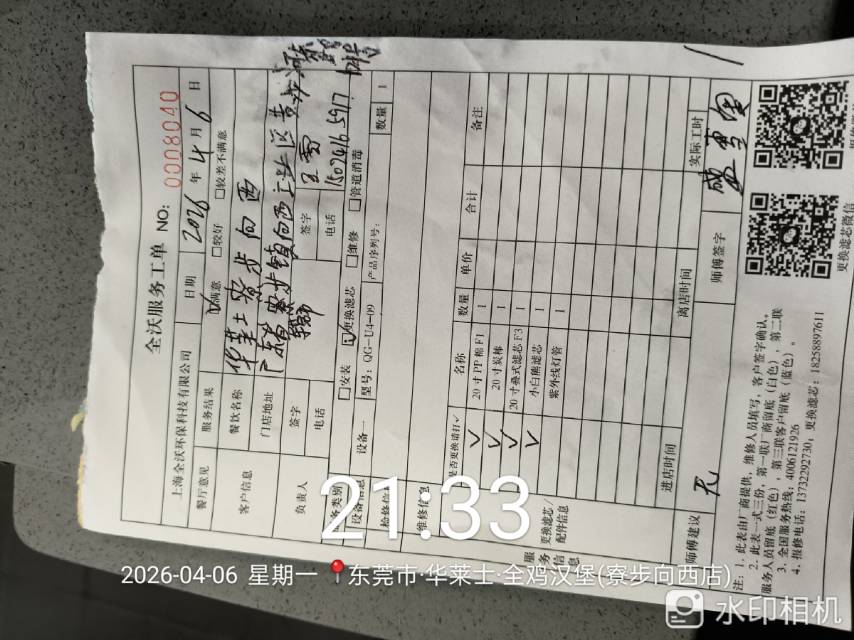 全沃服务工单 NO: 0008040
上海全沃环保科技有限公司 日期 2026 年 4 月 6 日
餐厅意见 服务结果 ☑满意 □较好 □较差不满意
客户信息 餐饮名称 华莱士寮步向西
门店地址 广东省寮步镇向西工业区
负责人 签字 签字 王
电话 电话
服务类别 □安装 ☑更换滤芯 □维修 □管道消毒
设备信息 设备一 型号: QG-U4-09 产品序列号: 数量 1
检修信息
维修信息
服务信息 更换滤芯/配件信息 是否更换请打✓ 名称 数量 单价 合计 备注
✓ 20寸PP棉F1 1
✓ 20寸炭棒 1
✓ 20寸叠式滤芯F3 1
✓ 小白熊滤芯 1
紫外线灯管 1
进店时间 离店时间 实际工时
师傅建议 无 师傅签字
注: 1. 此表由厂商提供, 维修人员填写, 客户签字确认。
2. 此表一式三份, 第一联厂商留底 (白色), 第二联
服务人员留底 (红色), 第三联客户留底 (蓝色)。
3. 全国服务热线: 4006121926
4. 报修电话: 13732292730; 更换滤芯: 18258897611
更换滤芯微信
21:33
2026-04-06 星期一 东莞市·华莱士·全鸡汉堡(寮步向西店)
水印相机